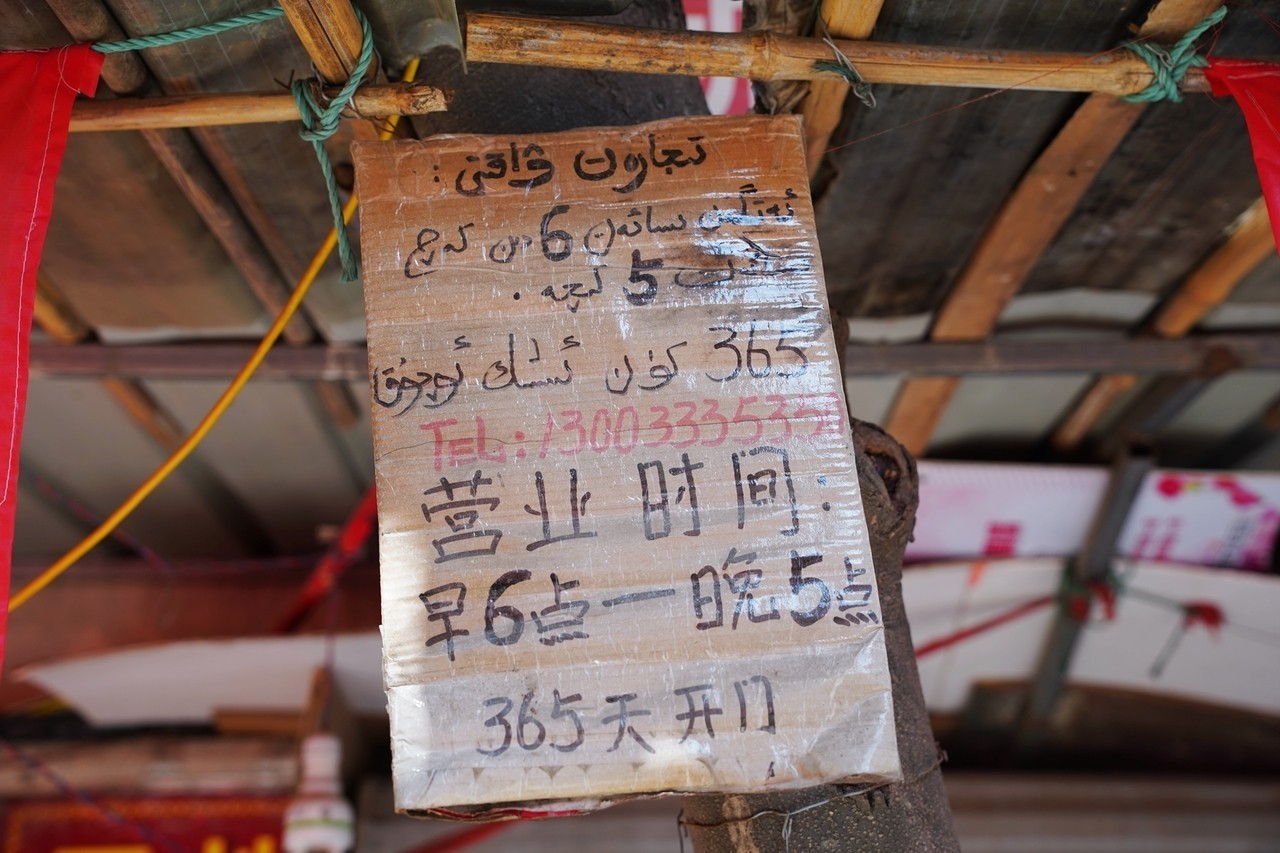 تىجارەت ۋاقتى :
ئەتىگەن سائەت 6 دىن كەچ
سائەت 5 كىچە .
365 كۈن ئىشىك ئوچۇق
TEL: 1300333535
营业时间:
早6点一晚5点
365天开门